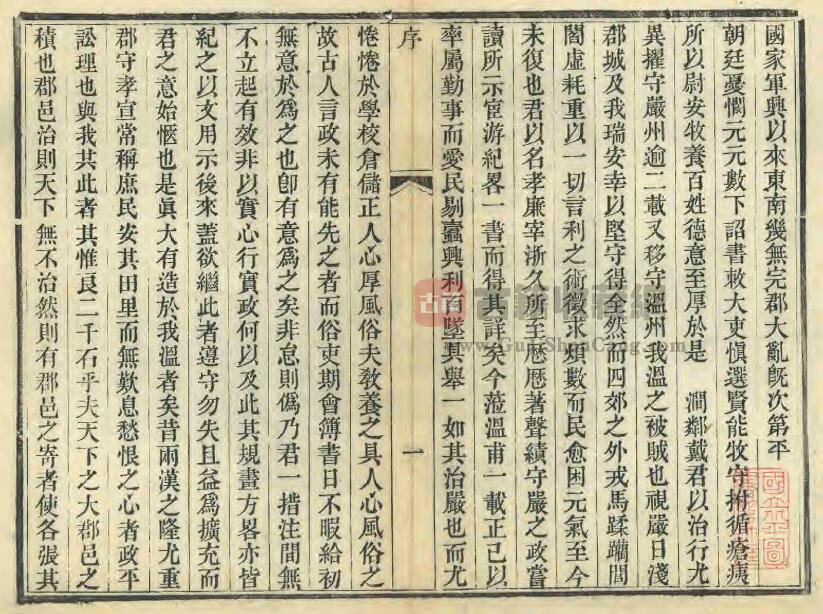 國家軍興以來東南幾無完郡大亂旣次第平
朝廷憂憫元元數下詔書敕大吏愼選賢能牧守拊循瘡痍
所以尉安牧養百姓德意至厚於是 澗鄰戴君以治行尤
異擢守嚴州逾二載又移守溫州我溫之被賊也視嚴日淺
郡城及我瑞安幸以堅守得全然而四郊之外戎馬蹂躪閭
閻虛耗重以一切言利之術徵求煩數而民愈困元氣至今
未復也君以名孝廉宰浙久所至歷歷著聲績守嚴之政嘗
讀所示宦游紀畧一書而得其詳矣今蒞溫甫一載正己以
率屬勤事而愛民剔蠹興利廢墜具舉一如其治嚴也而尤
序 一
惓惓於學校倉儲正人心厚風俗夫敎養之具人心風俗之
故古人言政未有能先之者而俗吏期會簿書日不暇給初
無意於爲之也卽有意爲之矣非怠則僞乃君一措注間無
不立起有效非以實心行實政何以及此其規畫方畧亦皆
紀之以文用示後來蓋欲繼此者遵守勿失且益爲擴充而
君之意始愜也是眞大有造於我溫者矣昔兩漢之隆尤重
郡守孝宣常稱庶民安其田里而無歎息愁恨之心者政平
訟理也與我其此者其惟良二千石乎夫天下之大郡邑之
積也郡邑治則天下無不治然則有郡邑之寄者使各張其
www.GuJiShouCang.com